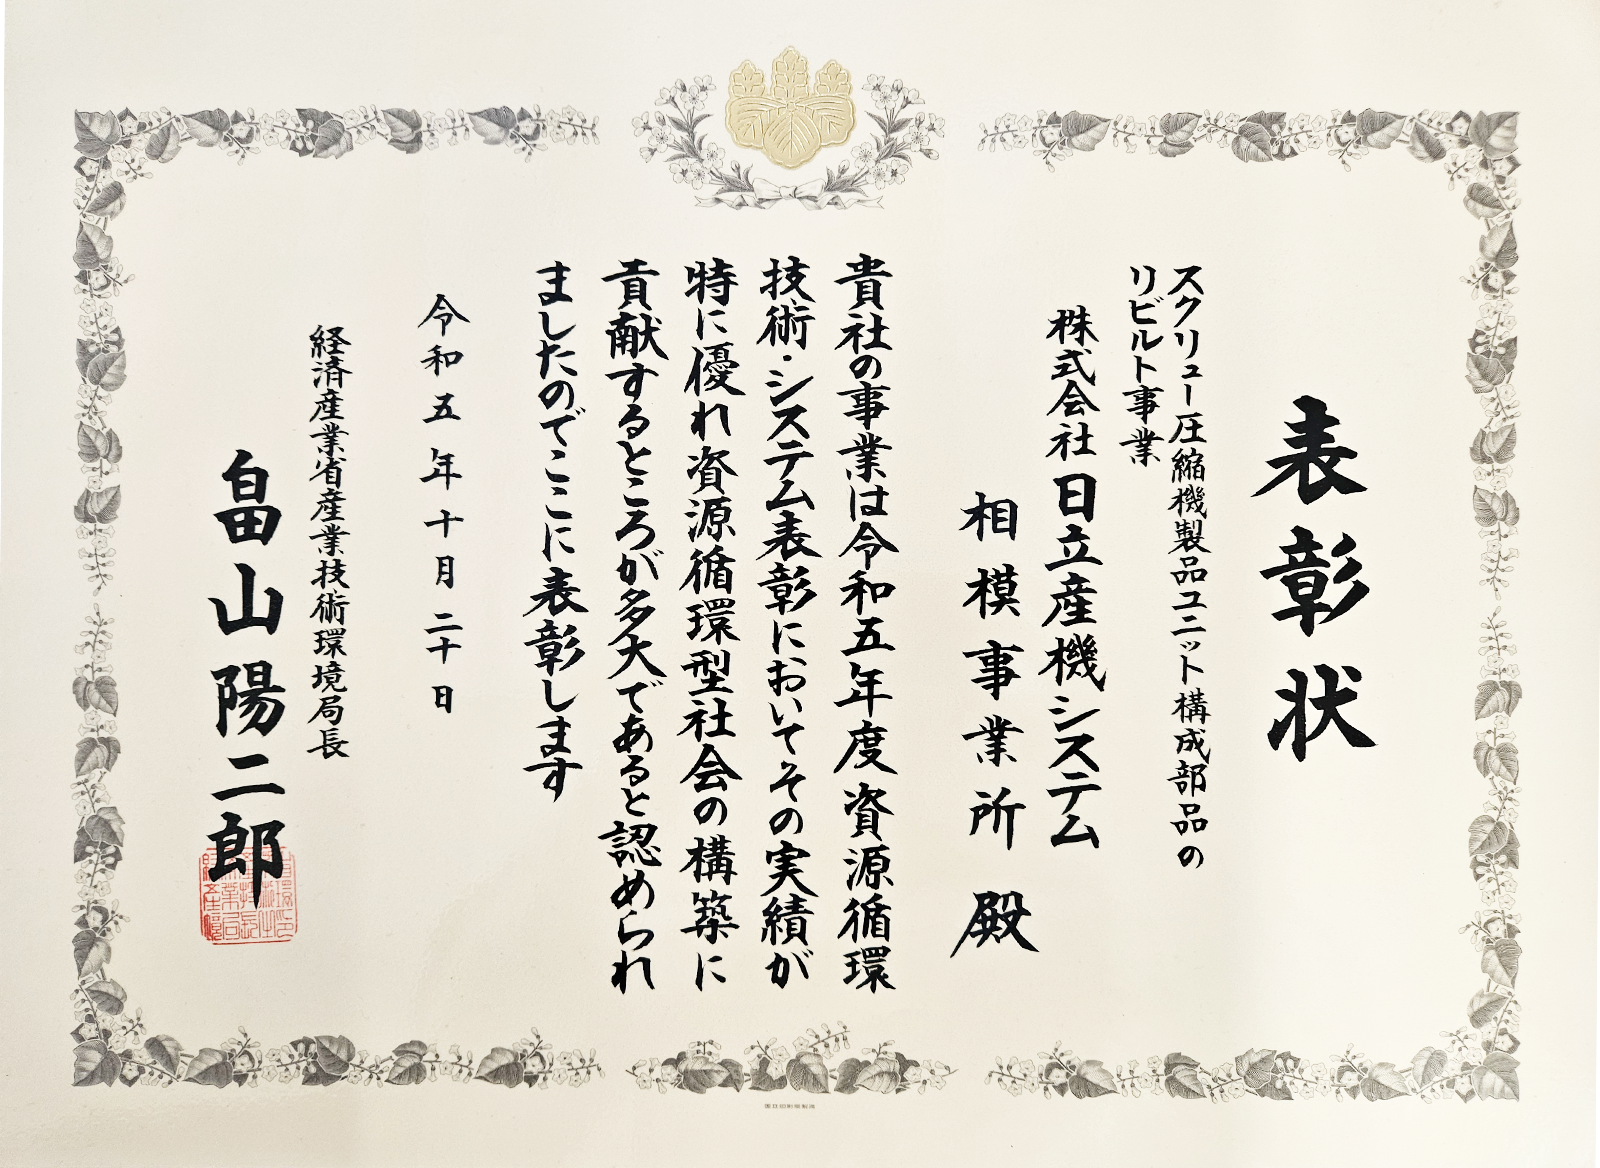 表彰状
スクリュー圧縮機製品ユニット構成部品の
リビルト事業
株式会社日立産機システム
相模事業所殿
貴社の事業は令和五年度資源循環
技術・システム表彰においてその実績が
特に優れ資源循環型社会の構築に
貢献するところが多大であると認められ
ましたのでここに表彰します
令和五年十月二十日
経済産業省産業技術環境局長
畠山陽二郎